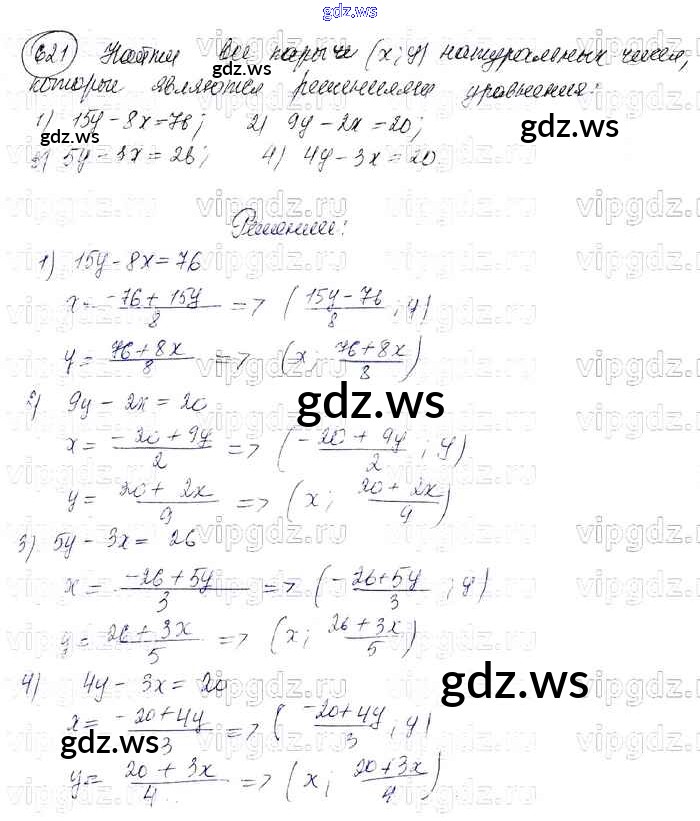 gdz.ws
621 Найти все пары (x; y) натуральных чисел,
которые являются решениями уравнения:
1) 15y - 8x = 76; 2) 9y - 2x = 20;
3) 5y - 3x = 26; 4) 4y - 3x = 20.
Решение:
1) 15y - 8x = 76
x = (-76 + 15y)/8 => ((15y - 76)/8 ; y)
y = (76 + 8x)/8 => (x; (76 + 8x)/8)
2) 9y - 2x = 20
x = (-20 + 9y)/2 => ((-20 + 9y)/2 ; y)
y = (20 + 2x)/9 => (x; (20 + 2x)/9)
3) 5y - 3x = 26
x = (-26 + 5y)/3 => ((-26 + 5y)/3 ; y)
y = (26 + 3x)/5 => (x; (26 + 3x)/5)
4) 4y - 3x = 20
x = (-20 + 4y)/3 => ((-20 + 4y)/3 ; y)
y = (20 + 3x)/4 => (x; (20 + 3x)/4)